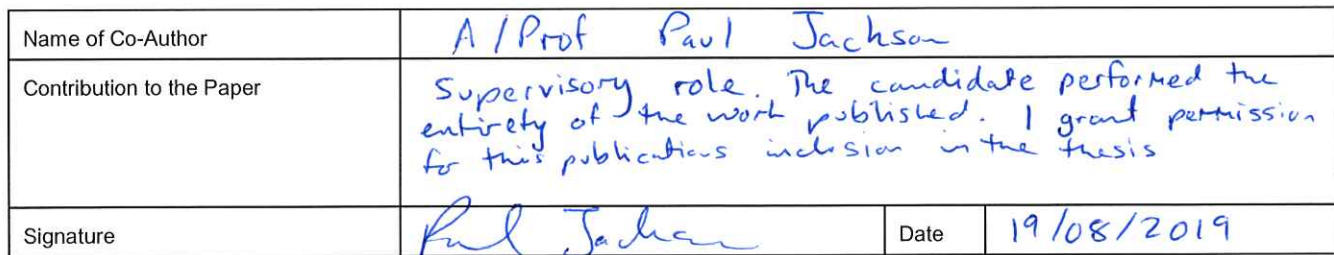 Name of Co-Author A/Prof Paul Jackson
Contribution to the Paper Supervisory role. The candidate performed the
entirety of the work published. I grant permission
for this publications inclusion in the thesis
Signature Paul Jackson Date 19/08/2019